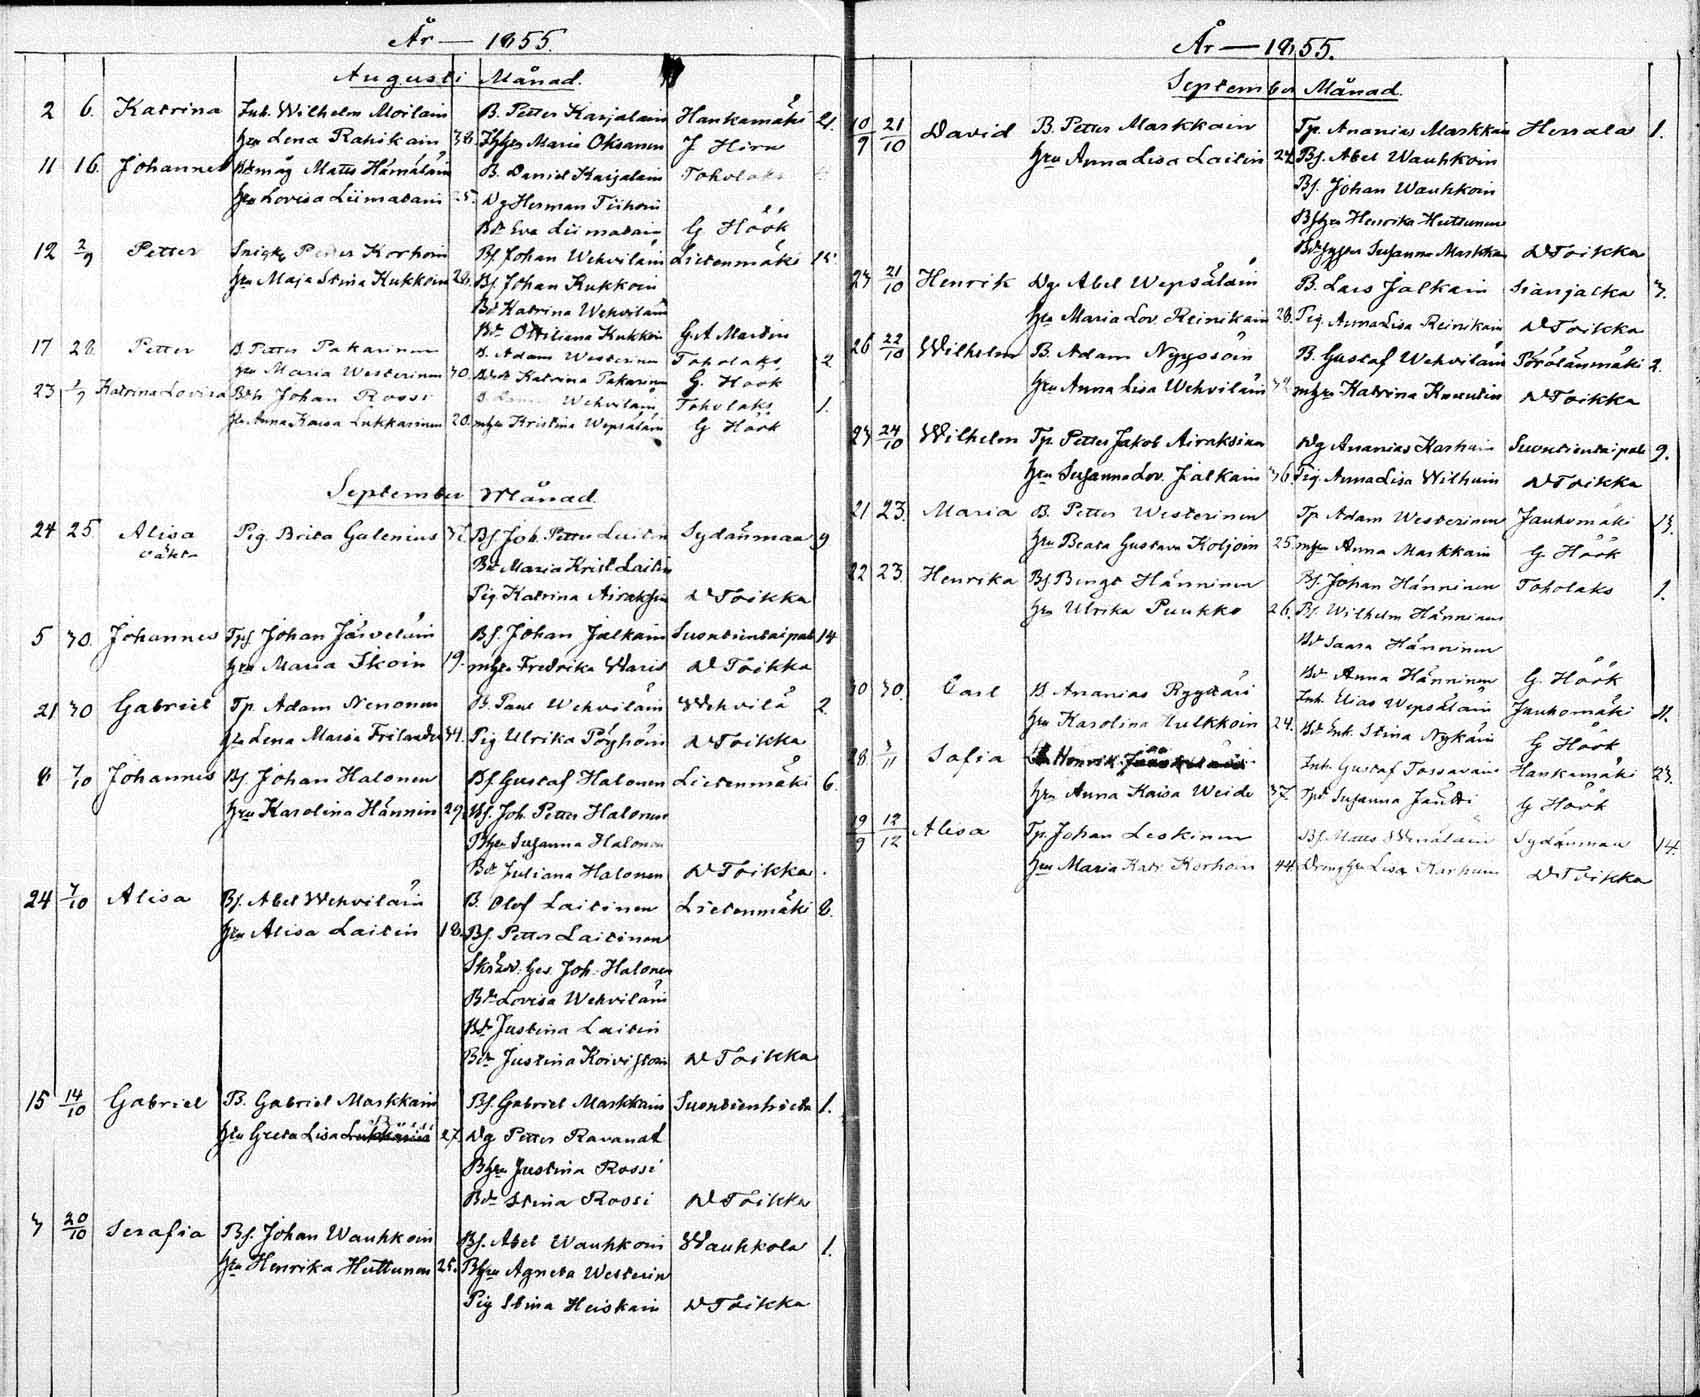 År — 1855.
Augusti Månad.
2 6. Katrina Inh. Wilhelm Moilain B. Petter Karjalain Hankamäki 21.
Hru Lena Räsikain 38. Maria Oksanen J Hirn
11 16. Johannes Bdmåg Matts Hämäläin B. Daniel Karjalain Toholaks
Hru Lovisa Liimatain 25. Dg Herman Tiihoin
Bdr Eva Liimatain G Höök
12 2/9 Petter Petter Korhoin Bs Johan Wehviläin Lietenmäki 15.
Hru Maja Stina Kukkoin 28. Bs Johan Kukkoin
Bdr Katrina Wehviläin
Bdr Ottiliana Kukkoin G.A Martin
17 28. Petter B. Petter Pakarinen B. Adam Westerinen Toholaks 2
Hru Maria Westerinen 30. Katrina Pakarinen G. Höök
23 1/9 Katrina Lovisa Bdr Johan Rossi Wehviläin Toholaks 1.
Hru Anna Kaisa Lukkarinen 20. mhru Kristina Wepsäläin G Höök
September Månad.
24 25. Alisa Pig. Brita Galenius 37. Bs Joh. Petter Laitin Sydänmaa 9
oäkta Bdr Maria Krist. Laitin
Pig Katrina Airaksin N Toikka
5 30. Johannes Tps Johan Järveläin Bs. Johan Jalkain Suontientaipal 14
Hru Maria Ikoin 19. mhru Fredrika Waris N Toikka
21 30 Gabriel Tp. Adam Nenonen B. Paul Wehviläin Wehvilä 2.
Hru Lena Maria Frilander 34. Pig Ulrika Pöyhöin N Toikka
8 7/10 Johannes Bs. Johan Halonen Bs Gustaf Halonen Lietenmäki 6.
Hru Karolina Hännin 29. Bs. Joh. Petter Halonen
Bhru Susanna Halonen
Bdr Juliana Halonen N Toikka
24 7/10 Alisa Bs. Abel Wehviläin B. Olof Laitinen Lietenmäki 8.
Hru Alisa Laitin 18. Bs. Petter Laitinen
Skräd. Ges. Joh. Halonen
Bdr Lovisa Wehviläin
Bdr Justina Laitin
Bdr Justina Koivistoin N Toikka
15 14/10 Gabriel B. Gabriel Markkain Bs. Gabriel Markkain Suontienhieta 1.
Hru Greta Lisa 27. Dg Petter Ravanat
Bhru Justina Rossi
Bdr Stina Rossi N Toikka
3 20/10 Serafia Bs. Johan Wauhkoin Bs. Abel Wauhkoin Wauhkola 1.
Hru Henrika Huttunen 25. Bhru Agneta Westerin
Pig Stina Heiskain N Toikka
År — 1855.
September Månad.
10/9 21/10 David B. Petter Markkain Tp. Ananias Markkain Herrala 1.
Hru Anna Lisa Laitin 24. Bs. Abel Wauhkoin
Bs. Johan Wauhkoin
Bshru Henrika Huttunen
Susanna Markkain N Toikka
23 21/10 Henrik Dg. Abel Wepsäläin B. Lars Jalkain Sianjalka 3.
Hru Maria Lov. Reinikain 28. Pig. Anna Lisa Reinikain N Toikka
26 22/10 Wilhelm B. Adam Nyyssöin B. Gustaf Wehviläin Pörölänmäki 2.
Hru Anna Lisa Wehviläin mhru Katrina Knuutin N Toikka
23 24/10 Wilhelm Tp. Petter Jakob Airaksinen Dg Ananias Karhuin Suontientaipal 9.
Hru Susanna Lov. Jalkain 36. Pig. Anna Lisa Wilhuin N Toikka
21 23. Maria B. Petter Westerinen Tp Adam Westerinen Jauhomäki 13.
Hru Beata Gustava Koljoin 25. mhru Anna Markkain G. Höök
22 23. Henrika Bs Bengt Hänninen Bs. Johan Hänninen Toholaks 1.
Hru Ulrika Puukko 26. Bs. Wilhelm Hänninen
Bdr Saara Hänninen
Bdr Anna Hänninen G. Höök
30 30. Carl B Ananias Ryykäin Inh. Elias Wepsäläin Jauhomäki 11.
Hru Karolina Hulkkoin 24. Bdr Enk. Stina Nykäin G Höök
28 3/11 Sofia Henrik Jääskeläin Inh. Gustaf Tossavain Hankamäki 23.
Hru Anna Kaisa Weide 37. Tpdr Susanna Jäntti G Höök
19/9 12/12 Alisa Tp. Johan Leskinen Bs. Matts Wenäläin Sydänmaa 14.
Hru Maria Katr. Korhoin 44. Lisa Karhuin N Toikka